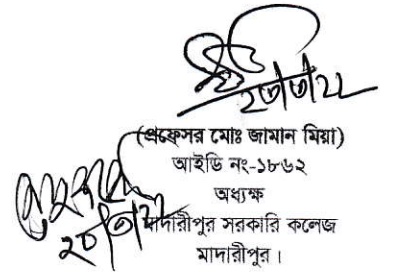 (প্রফেসর মোঃ জামান মিয়া)
আইডি নং-১৮৬২
অধ্যক্ষ
মাদারীপুর সরকারি কলেজ
মাদারীপুর।